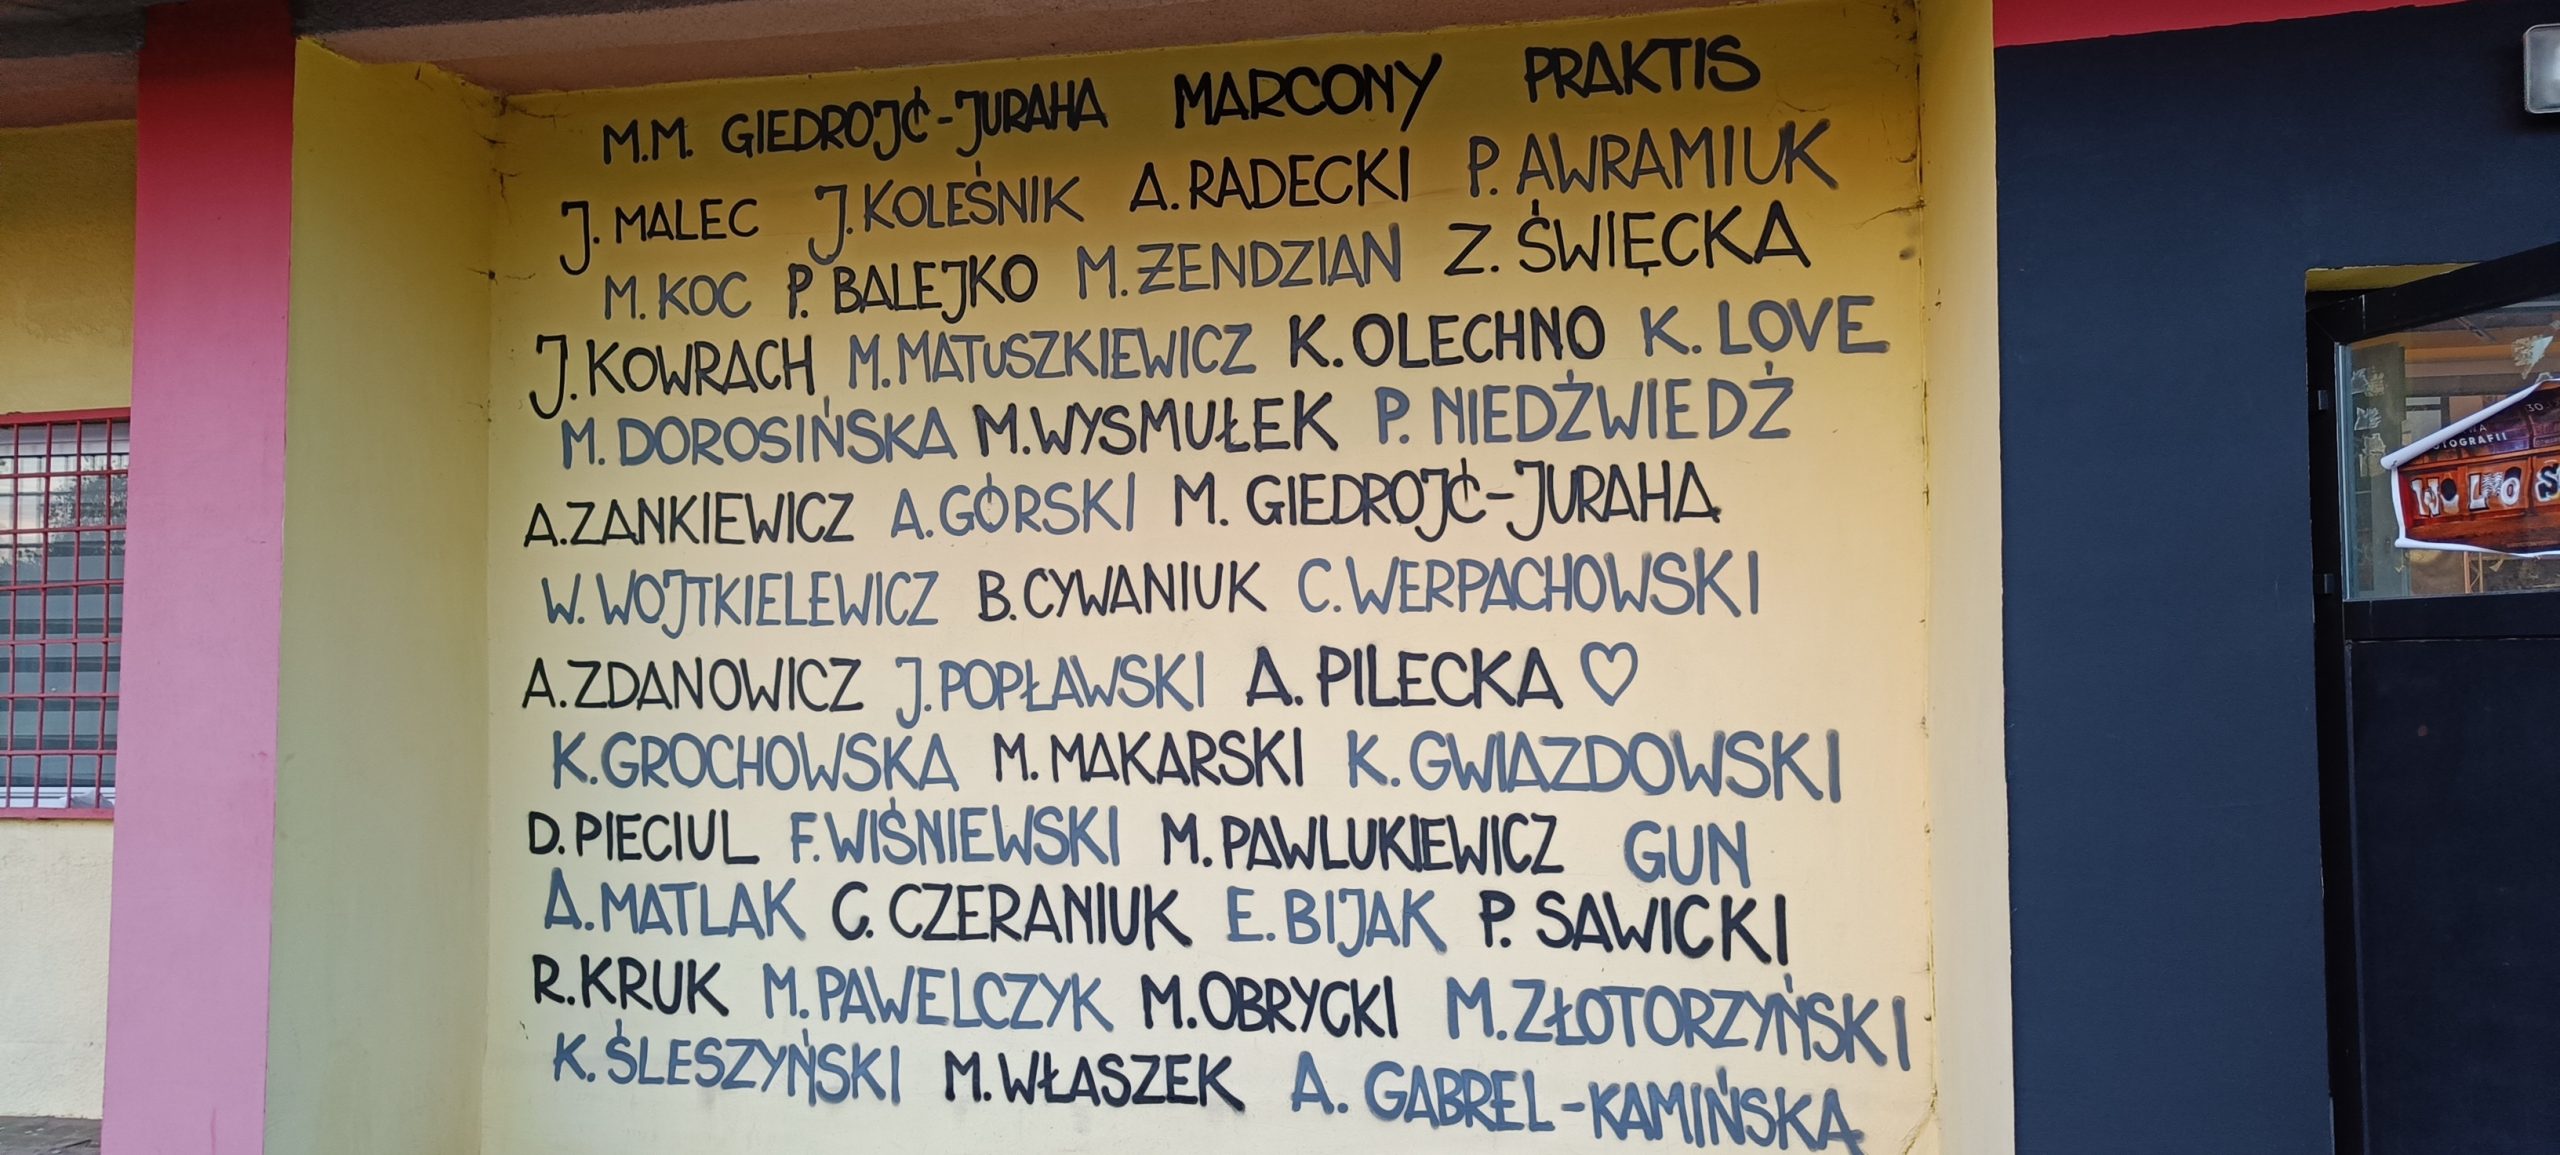 M.M. GIEDROJĆ-JURAHA MARCONY PRAKTIS
J. MALEC J. KOLEŚNIK A. RADECKI P. AWRAMIUK
M. KOC P. BALEJKO M. ŻENDZIAN Z. ŚWIĘCKA
J. KOWRACH M. MATUSZKIEWICZ K. OLECHNO K. LOVE
M. DOROSIŃSKA M. WYSMUŁEK P. NIEDŹWIEDŹ
A. ZANKIEWICZ A. GÓRSKI M. GIEDROJĆ-JURAHA
W. WOJTKIELEWICZ B. CYWANIUK C. WERPACHOWSKI
A. ZDANOWICZ J. POPŁAWSKI A. PILECKA ♡
K. GROCHOWSKA M. MAKARSKI K. GWIAZDOWSKI
D. PIECIUL F. WIŚNIEWSKI M. PAWLUKIEWICZ GUN
A. MATLAK C. CZERANIUK E. BIJAK P. SAWICKI
R. KRUK M. PAWELCZYK M. OBRYCKI M. ZŁOTORZYŃSKI
K. ŚLESZYŃSKI M. WŁASZEK A. GABREL-KAMIŃSKA
30